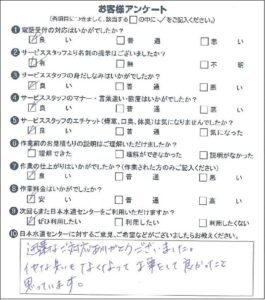 お客様アンケート
(各項目につきまして、該当する□の中に✓をご記入ください。)
1 電話受付の対応はいかがでしたか?
良い 普通 悪い
2 サービススタッフより名刺の提示はございましたか?
有 無 不明
3 サービススタッフの身だしなみはいかがでしたか?
良い 普通 悪い
4 サービススタッフのマナー・言葉遣い・態度はいかがでしたか?
良い 普通 悪い
5 サービススタッフのエチケット(煙草、口臭、体臭)は気になりませんでしたか?
良い 普通 気になった
6 作業前のお見積もりの説明はご理解いただけましたか?
理解できた 理解ができなかった 説明がなかった
7 作業の仕上がりはいかがでしたか?(作業された方のみご記入ください)
良い 普通 悪い
8 作業料金はいかがでしたか?
安い 普通 高い
9 次回もまた日本水道センターをご利用いただけますか?
ぜひ利用したい 利用したい 利用したくない
10 日本水道センターに対するご意見、ご希望などがございましたらお教えください。
迅速なご対応ありがとうございました。
イヤな臭いもなくなって お願いして良かったと
思っています。